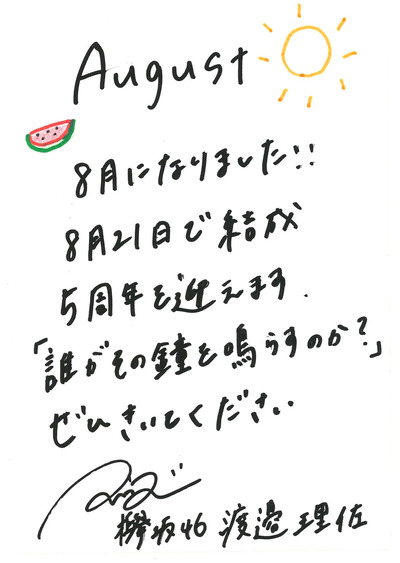 August
8月になりました!!
8月21日で結成
5周年を迎えます.
「誰がその鐘を鳴らすのか?」
ぜひきいてください
欅坂46 渡邉理佐